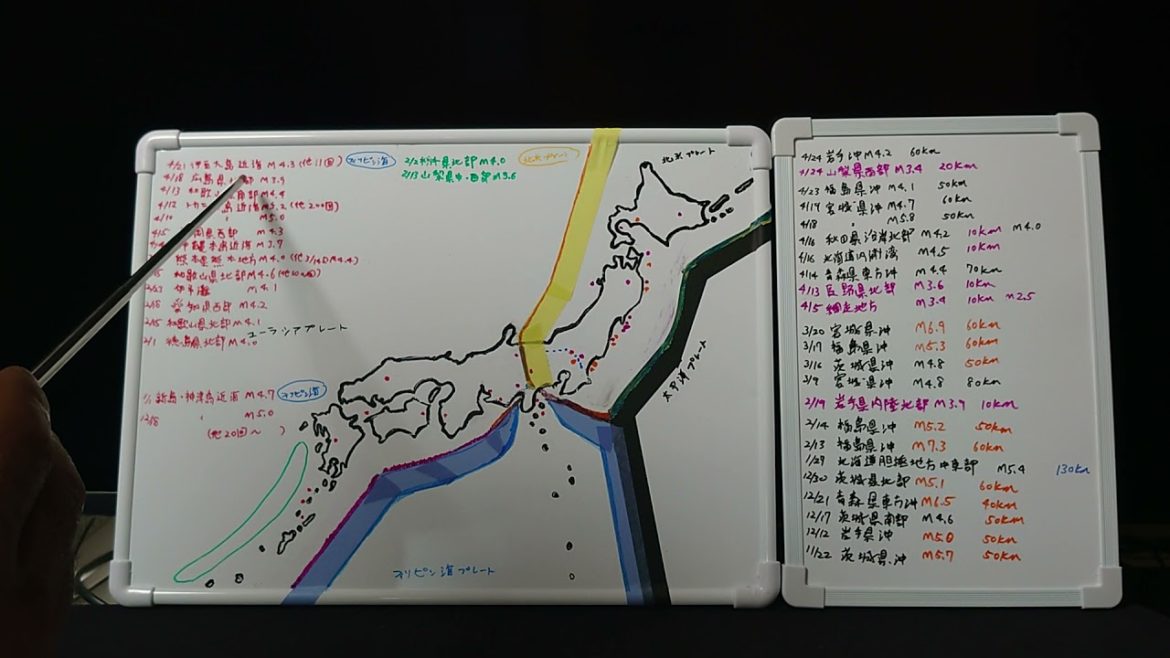 4/21 伊豆大島近海 M4.3 (他11回)
フィリピン海
4/18 広島県 部 M3.9
4/13 和歌山県南部 M4.4
4/12 トカラ 島近海 M5.2 (他200回)
4/10 〃 M5.0
4/5 岡県西部 M4.3
沖縄本島近海 M3.7
熊本県熊本地方 M4.0 (他3/19 M4.4)
和歌山県北部 M4.6 (他10回)
伊予灘 M4.1
愛知県西部 M4.2
2/15 和歌山県北部 M4.1
2/1 徳島県北部 M4.0
ユーラシアプレート
新島・神津島近海 M4.7
フィリピン海
12/18 〃 M5.0
(他20回〜 )
県北部 M4.0
2/13 山梨県中・西部 M3.6
北米プレート
北米プレート
太平洋プレート
フィリピン海プレート
4/24 岩手沖 M4.2 60km
4/24 山梨県西部 M3.4 20km
4/23 福島県沖 M4.1 50km
4/19 宮城県沖 M4.7 60km
4/18 〃 M5.8 50km
4/16 秋田県沿岸北部 M4.2 10km M4.0
4/16 北海道内浦湾 M4.5 10km
4/14 青森県東方沖 M4.4 70km
4/13 長野県北部 M3.6 10km
4/5 網走地方 M3.4 10km M2.5
3/20 宮城県沖 M6.9 60km
3/17 福島県沖 M5.3 60km
3/16 茨城県沖 M4.8 50km
3/9 宮城県沖 M4.8 80km
2/19 岩手県内陸北部 M3.9 10km
2/14 福島県沖 M5.2 50km
2/13 福島県沖 M7.3 60km
1/29 北海道胆振地方中東部 M5.4 130km
12/30 茨城県北部 M5.1 60km
12/21 青森県東方沖 M6.5 40km
12/17 茨城県南部 M4.6 50km
12/12 岩手県沖 M5.0 50km
11/22 茨城県沖 M5.7 50km